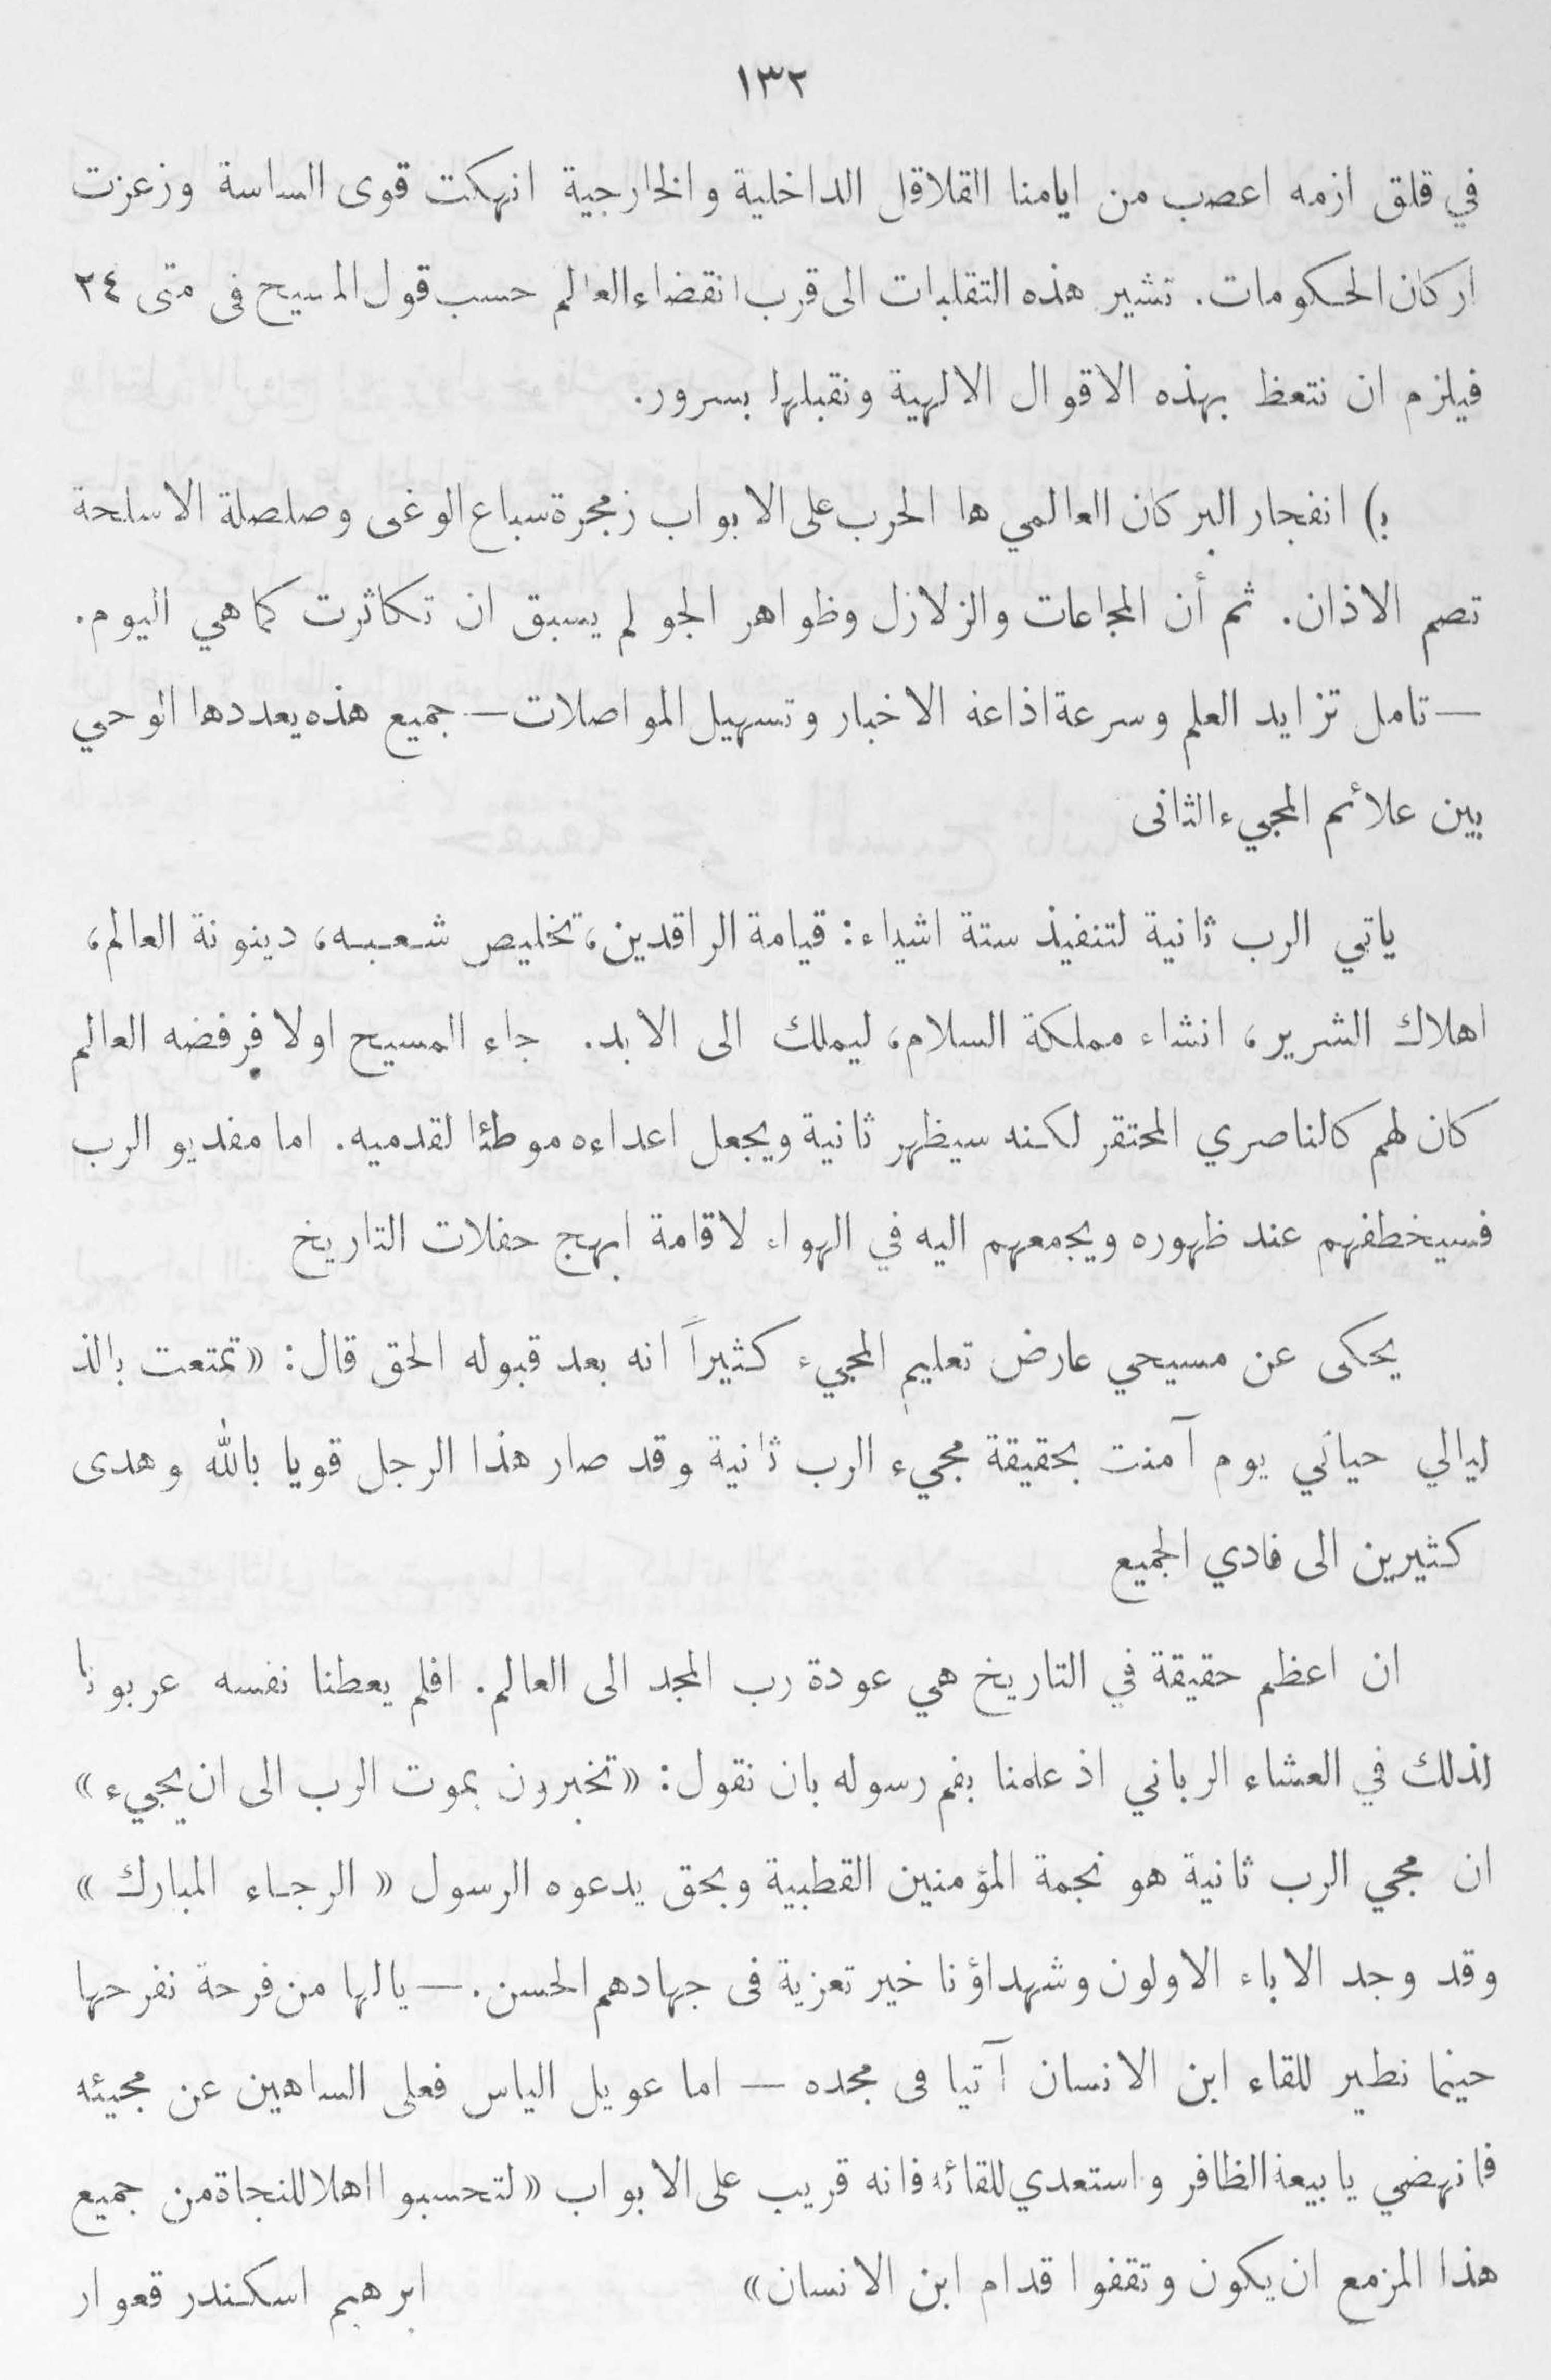 ١٣٢
في قلق ازمه اعصب من ايامنا القلاقل الداخلية والخارجية انهكت قوى الساسة وزعزت
اركان الحكومات. تشير هذه التقلبات الى قرب انقضاء العالم حسب قول المسيح فى متى ٢٤
فيلزم ان نتعظ بهذه الاقوال الالهية ونقبلها بسرور.
ب) انفجار البركان العالمي ها الحرب على الابواب زمجرة سباع الوغى وصلصلة الاسلحة
تصم الاذان. ثم أن المجاعات والزلازل وظواهر الجو لم يسبق ان تكاثرت كما هي اليوم.
— تامل تزايد العلم وسرعة اذاعة الاخبار وتسهيل المواصلات — جميع هذه يعددها الوحي
بين علائم المجيء الثانى
ياتي الرب ثانية لتنفيذ ستة اشياء: قيامة الراقدين، تخليص شعبه، دينونة العالم،
اهلاك الشرير، انشاء مملكة السلام، ليملك الى الابد. جاء المسيح اولا فرفضه العالم
كان لهم كالناصري المحتقر لكنه سيظهر ثانية ويجعل اعداءه موطئا لقدميه. اما مفديو الرب
فسيخطفهم عند ظهوره ويجمعهم اليه في الهواء لاقامة ابهج حفلات التاريخ
يحكى عن مسيحي عارض تعليم المجيء كثيراً انه بعد قبوله الحق قال: «تمتعت بالذ
ليالي حياتي يوم آمنت بحقيقة مجيء الرب ثانية وقد صار هذا الرجل قويا بالله وهدى
كثيرين الى فادي الجميع
ان اعظم حقيقة في التاريخ هي عودة رب المجد الى العالم. افلم يعطنا نفسه عربونا
لذلك في العشاء الرباني اذ علمنا بفم رسوله بان نقول: «تخبرون بموت الرب الى ان يجيء»
ان مجي الرب ثانية هو نجمة المؤمنين القطبية وبحق يدعوه الرسول «الرجاء المبارك»
وقد وجد الاباء الاولون وشهداؤنا خير تعزية فى جهادهم الحسن. — يالها من فرحة نفرحها
حينما نطير للقاء ابن الانسان آتيا فى مجده — اما عويل الياس فعلى الساهين عن مجيئه
فانهضي يا بيعة الظافر واستعدي للقائه فانه قريب على الابواب «لتحسبوا اهلا للنجاة من جميع
هذا المزمع ان يكون وتقفوا قدام ابن الانسان» ابرهيم اسكندر قعوار